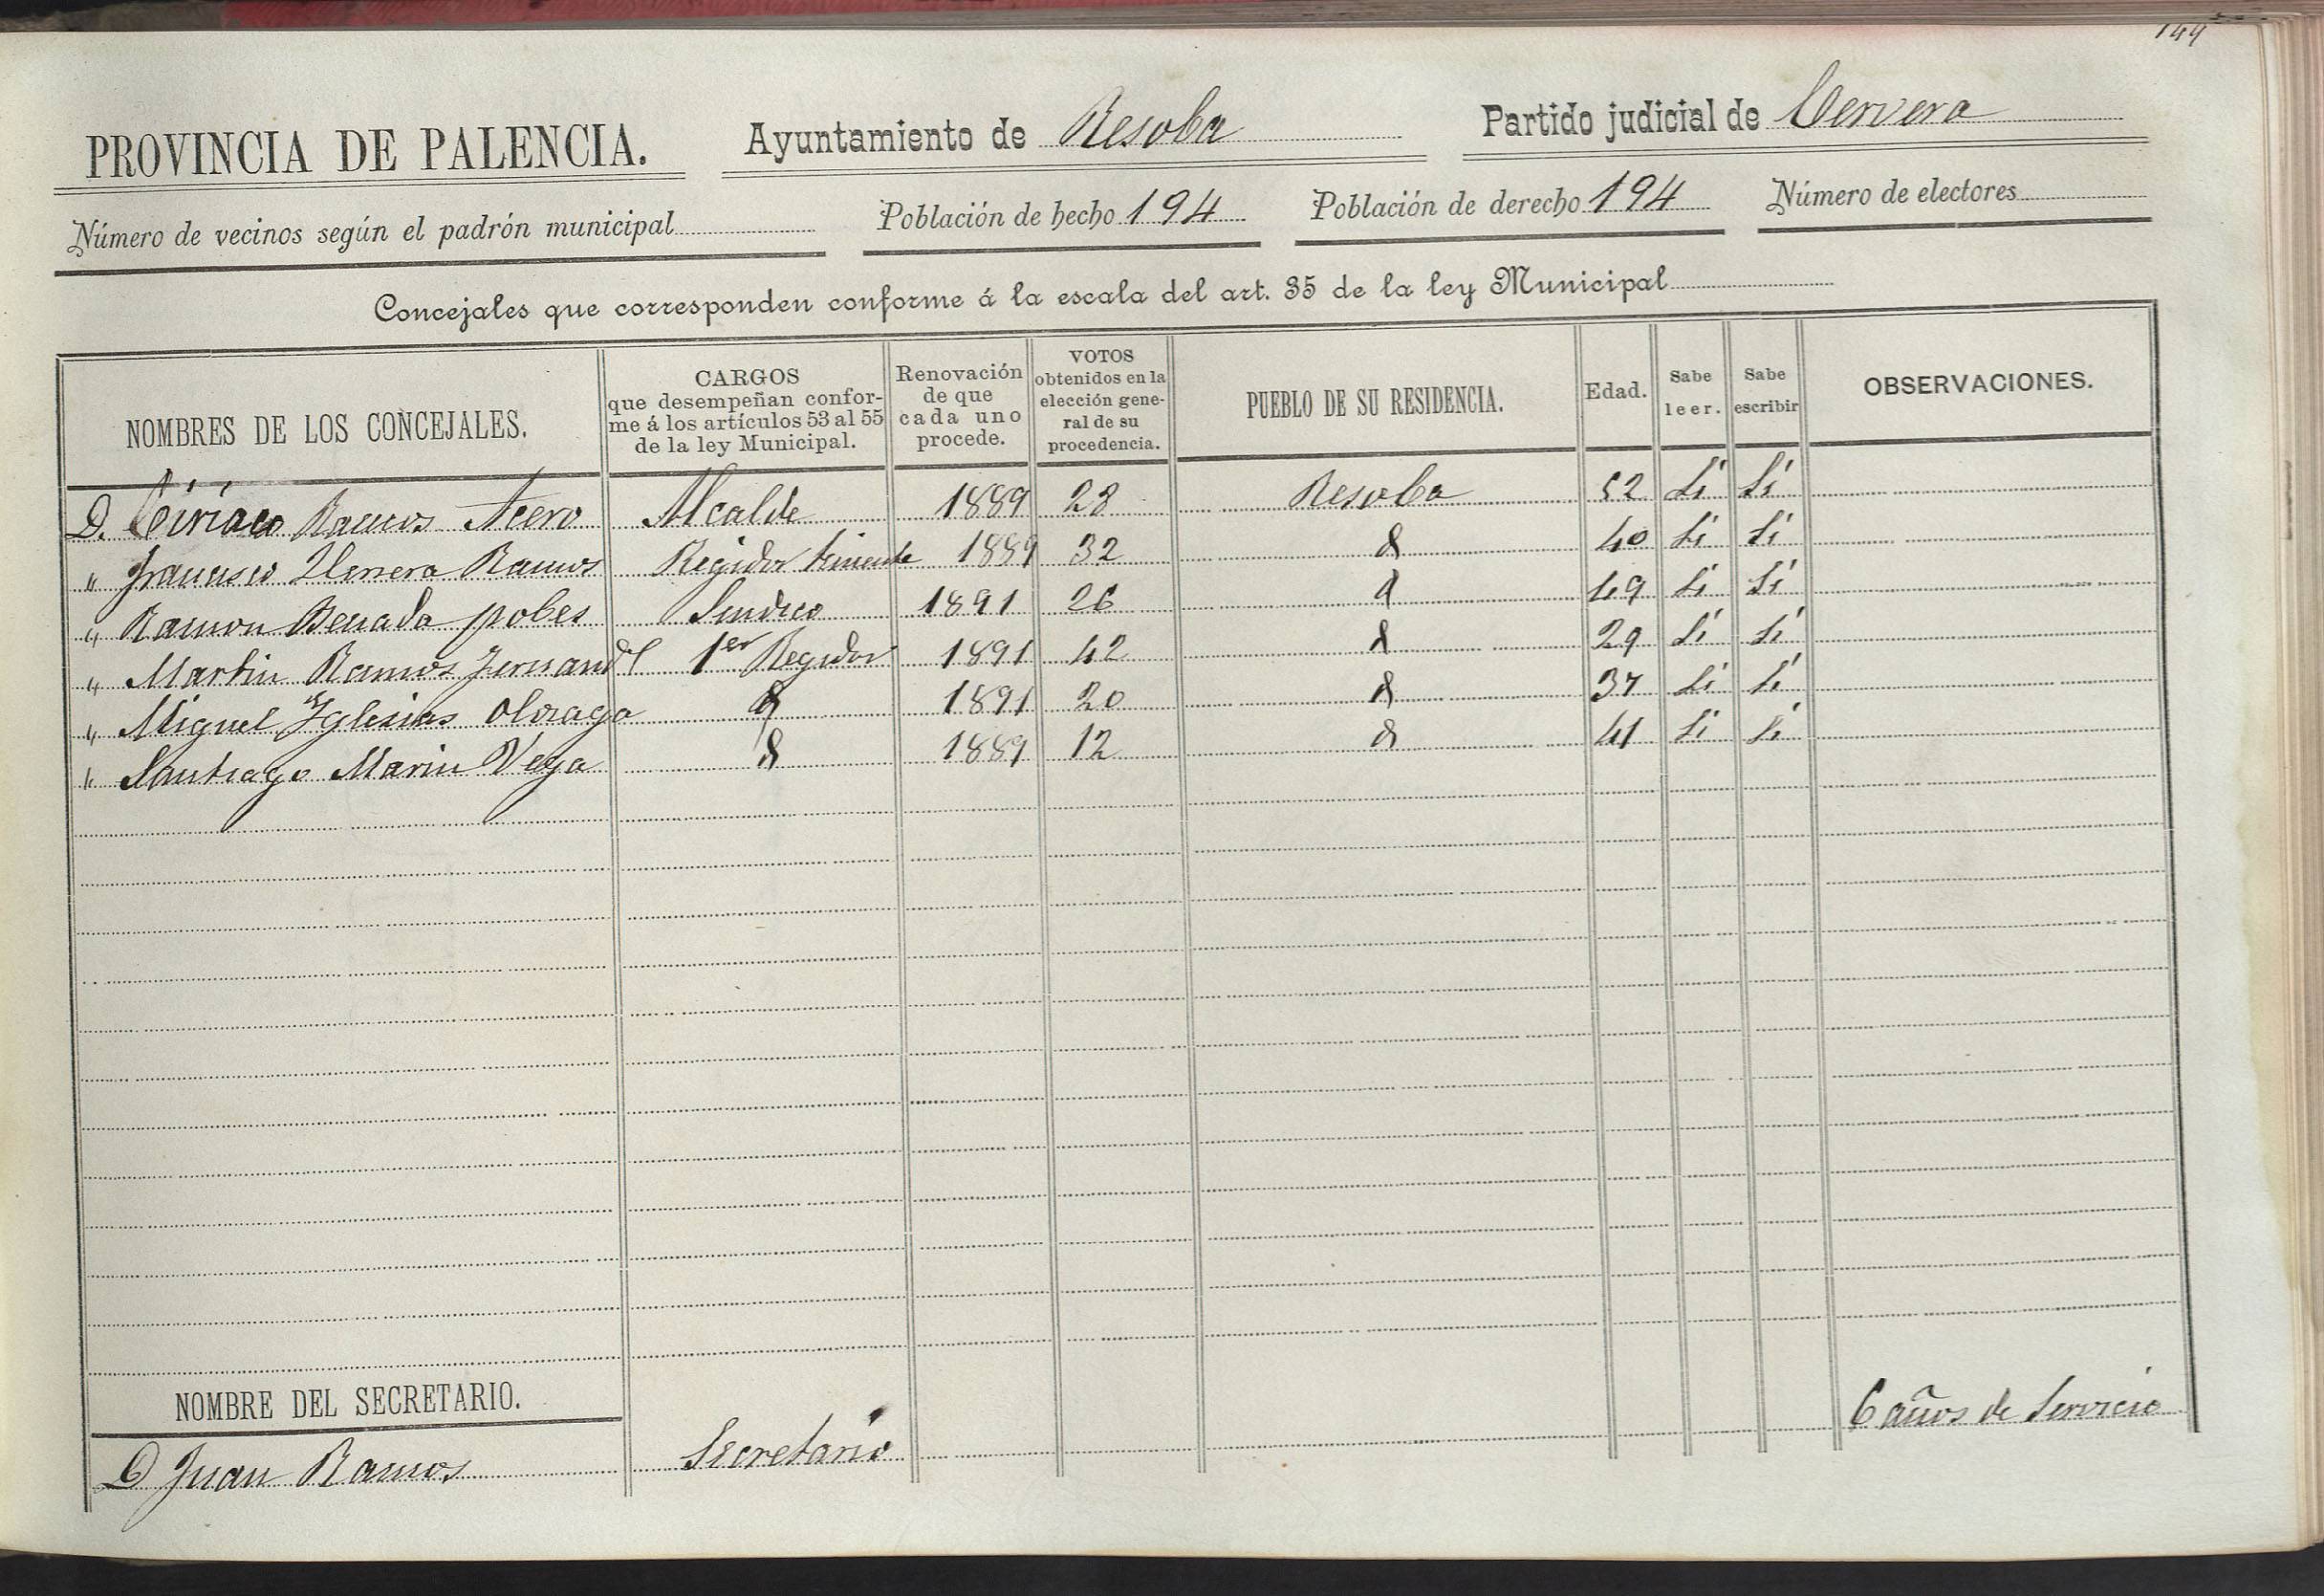 149
PROVINCIA DE PALENCIA. Ayuntamiento de Resoba Partido judicial de Cervera
Número de vecinos según el padrón municipal Población de hecho 194 Población de derecho 194 Número de electores
Concejales que corresponden conforme á la escala del art. 35 de la ley Municipal
NOMBRES DE LOS CONCEJALES. CARGOS que desempeñan confor-me á los artículos 53 al 55 de la ley Municipal. Renovación de que cada uno procede. VOTOS obtenidos en la elección gene-ral de su procedencia. PUEBLO DE SU RESIDENCIA. Edad. Sabe leer. Sabe escribir OBSERVACIONES.
D. Ciriaco Ramos Acero Alcalde 1889 28 Resoba 52 Si Si
" Francisco Herrera Ramos Regidor teniente 1889 32 d 40 Si Si
" Ramon Benada pobes Sindico 1891 26 d 49 Si Si
" Martin Ramos 1er Regidor 1891 42 d 29 Si Si
" Miguel Yglesias d 1891 20 d 37 Si Si
" Santiago Marin Vega d 1889 12 d 41 Si Si
NOMBRE DEL SECRETARIO.
D Juan Ramos Secretario 6 años de Servicio